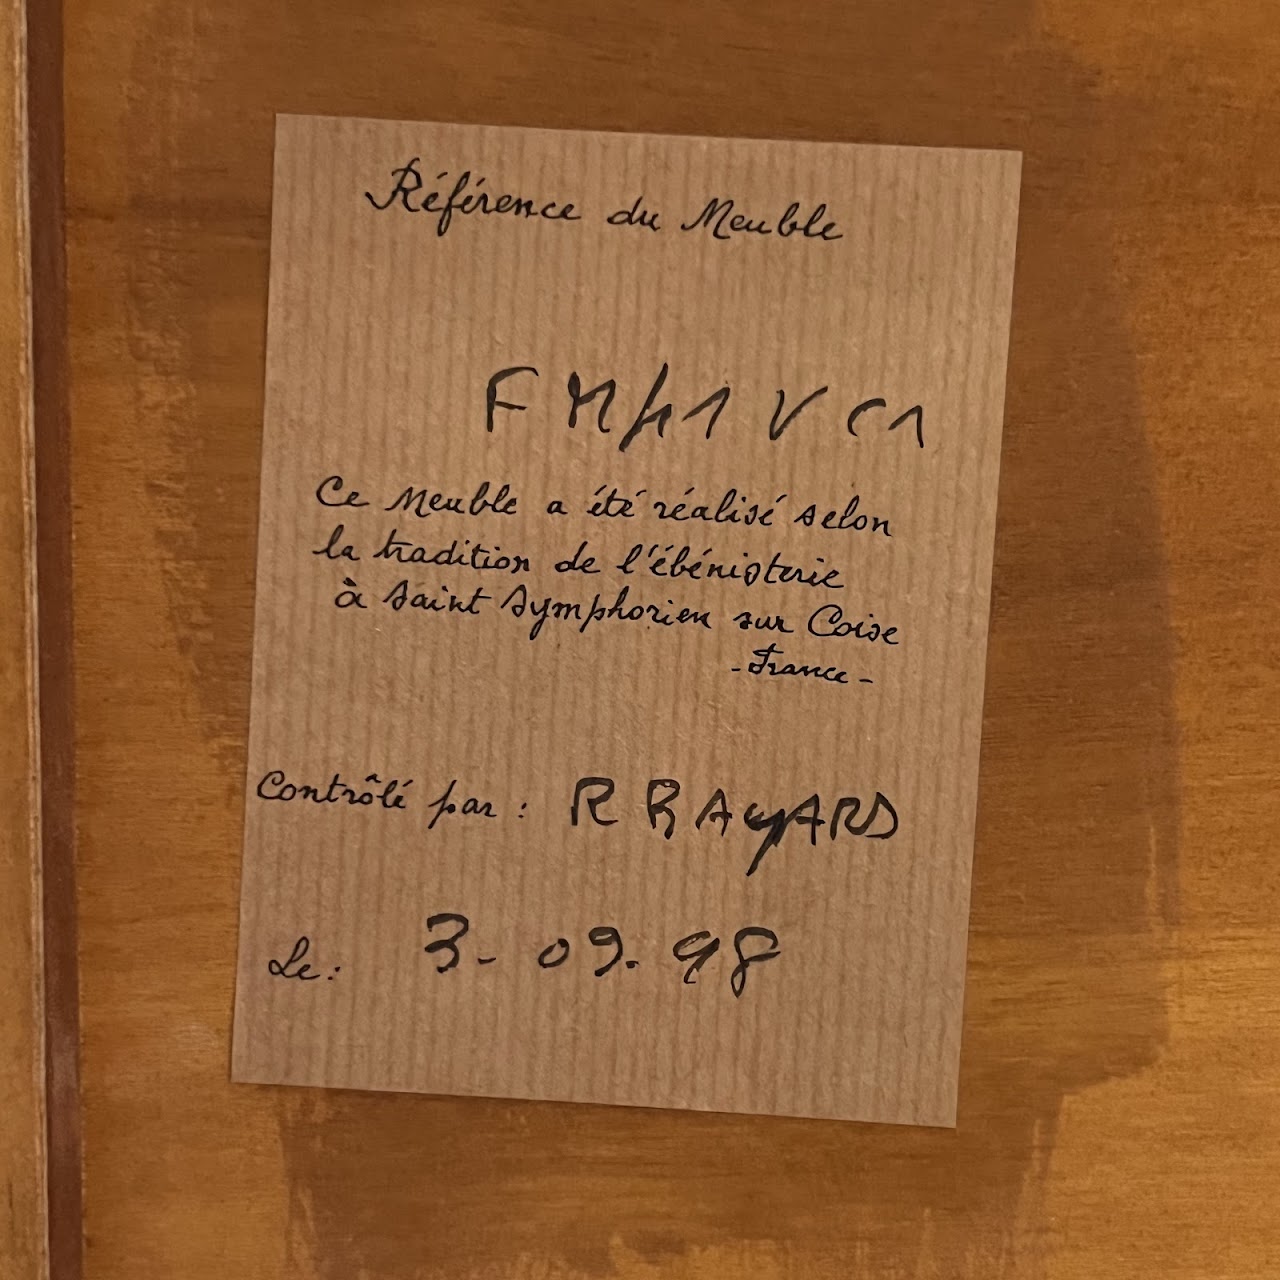 Référence du Meuble
FM41 VC1
Ce Meuble a été réalisé selon
la tradition de l'ébénisterie
à Saint Symphorien sur Coise
- France -
Contrôlé par : R BAYARD
Le : 3-09.98